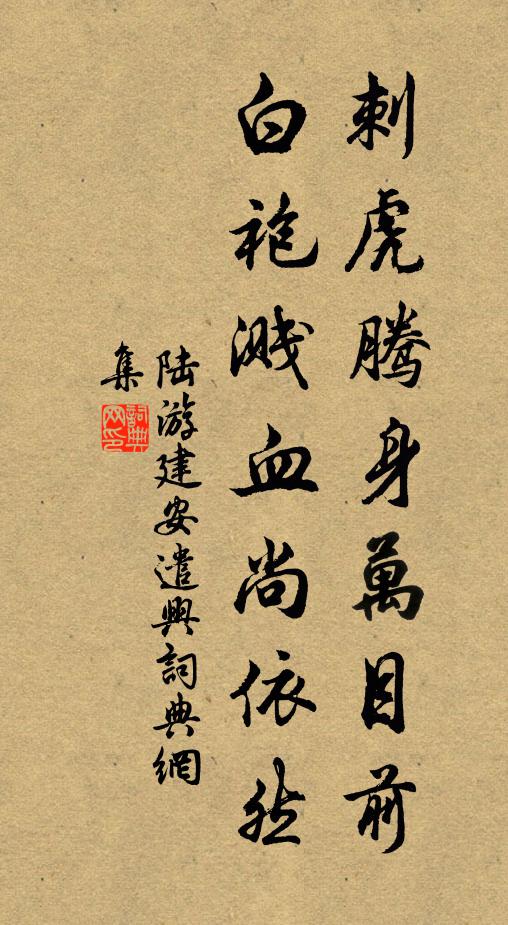 刺虎騰身萬目前
白袍濺血尚依然
陸游建安遣興詞典網
集
詞典
网印